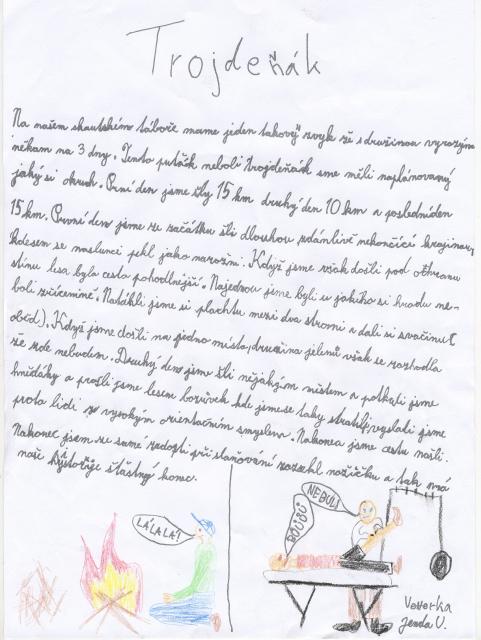 Trojdeňák
Na našem skautském táboře mame jeden takový zvyk že s družinou vyrazýme
někam na 3 dny. Tento puťák neboli trojdeňák sme měli naplánovaný
jaký si okruh. Prní den jsme šly 15 km druhý den 10 km a poslední den
15 km. První den jsme ze začátku šli dlouhou zdánlivě nekončící krajinou,
kdesem se na slunci pekl jako na rožni. Když jsme však došli pod ochranu
stínu lesa byla cesta pohodlnejší. Najednou jsme byli u jakého si hradu ne-
boli zřícenině. Natáhli jsme si plachtu mezi dva stromi a dali si svačinu (
oběd). Když jsme došli na jedno místo, družina jelenů však se rozhodla
že zde nebudem. Druhý den jsme šli nějakým městem a potkali jsme
hnidáky a prošli jsme lesem borůvek kde jsme se taky stratili, vyslali jsme
proto lidi s vysokým orientačním smyslem. Nakonec jsme cestu našli.
Nakonec jsem se samé radosti při slaňování rozsekl nožičku a tak má
naše hystorije šťastný konec.
LÁLALÁ!
BOLÍ BOLÍ
NEBULÍ
Veverka
Jenda V.